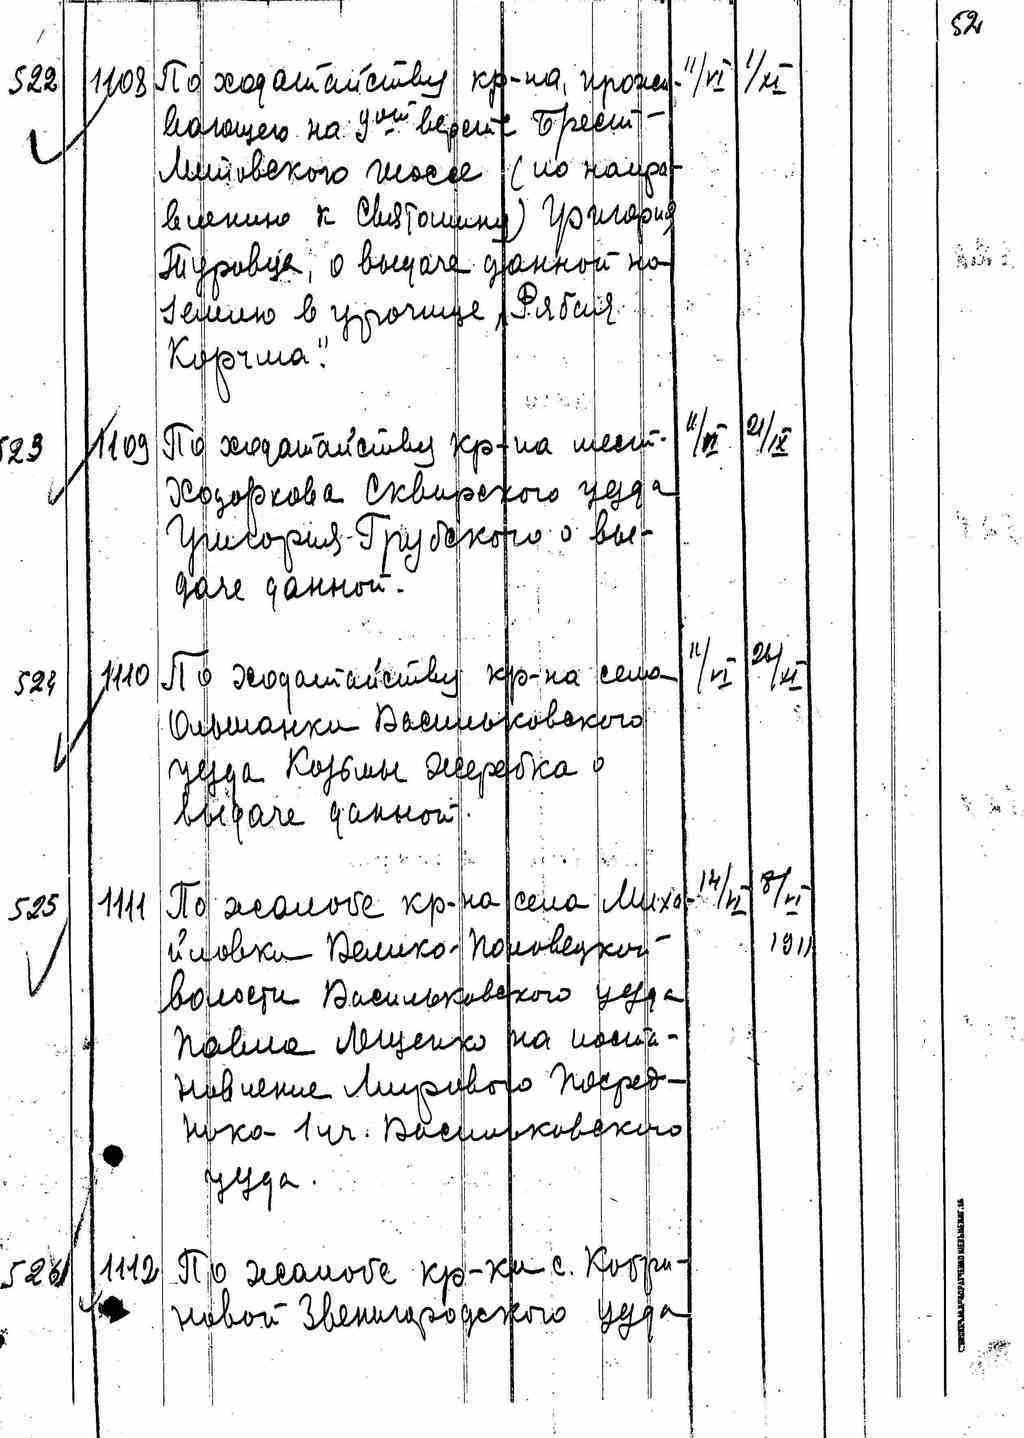 52
522 1108 По ходатайству кр-на, прожи- 11/VI 1/XI
вающего на 9ой версте Брест-
Литовского шоссе (по напра-
влению к Святошину) Григория
Туровца, о выдаче данной на
землю в урочище „Рябая
Корчма".
523 1109 По ходатайству кр-на мест. 11/VI 21/IX
Ходоркова Сквирского уезда
Григория Грубского о вы-
даче данной.
524 1110 По ходатайству кр-на села 11/VI 26/XI
Ольшанки Васильковского
уезда Козьмы Жеребка о
выдаче данной.
525 1111 По жалобе кр-на села Миха- 14/VI 8/VI
йловки Велико-Половецкой 1911
волости Васильковского уезда
Павла Ющенко на поста-
новление Мирового Посред-
ника 1 уч. Васильковского
уезда.
526 1112 По жалобе кр-ки с. Кобри-
новой Звенигородского уезда